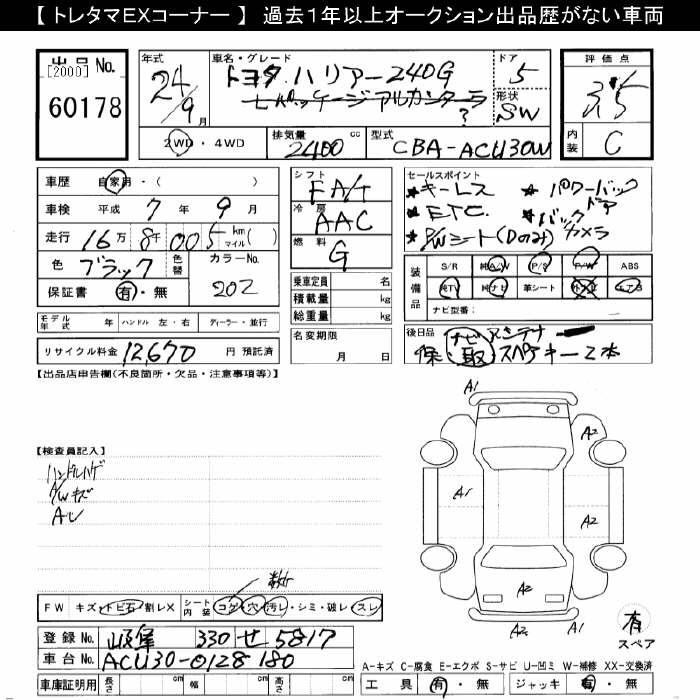 【 トレタマEXコーナー 】 過去1年以上オークション出品歴がない車両
出品 No. [2000]
60178
年式 24/9 月
車名・グレード トヨタ ハリアー 240G
Lパッケージアルカンターラ ?
ドア 5
形状 SW
評価点 3.5
内装 C
2WD・4WD
排気量 2400 cc
型式 CBA-ACU30W
車歴 自家用・( )
車検 平成 7 年 9 月
走行 16万8千005 km マイル( )
色 ブラック 色替 カラーNo. 202
保証書 有・無
モデル年式 年 ハンドル 左・右 ディーラー・並行
リサイクル料金 12,670 円 預託済
シフト FA/T
冷房 AAC
燃料 G
乗車定員 名
積載量 kg
総重量 kg
名変期限 月 日
セールスポイント
*キーレス *パワーバックドア
*ETC *バックカメラ
*P/Wシート(Dのみ)
装備品 S/R 純A/W P/S P/W ABS
純TV 純ナビ 革シート エアB
ナビ型番( )
後日品 ナビ
保 取 スペアキー2本
【出品店申告欄(不良箇所・欠品・注意事項等)】
【検査員記入】
ハンドルハゲ
A/Wキズ
FW キズ・トビ石・割レX シート内装 コゲ・穴・汚レ・シミ・破レ・スレ
登録 No. 330 せ 5817
車台 No. ACU30-0128180
車庫証明用 長さ cm 幅 cm 高さ cm
A1
A2
A1
A2
A2
A2 A1
有
スペア
A-キズ C-腐食 E-エクボ S-サビ U-凹ミ W-補修 XX-交換済
工具 有・無 ジャッキ 有・無